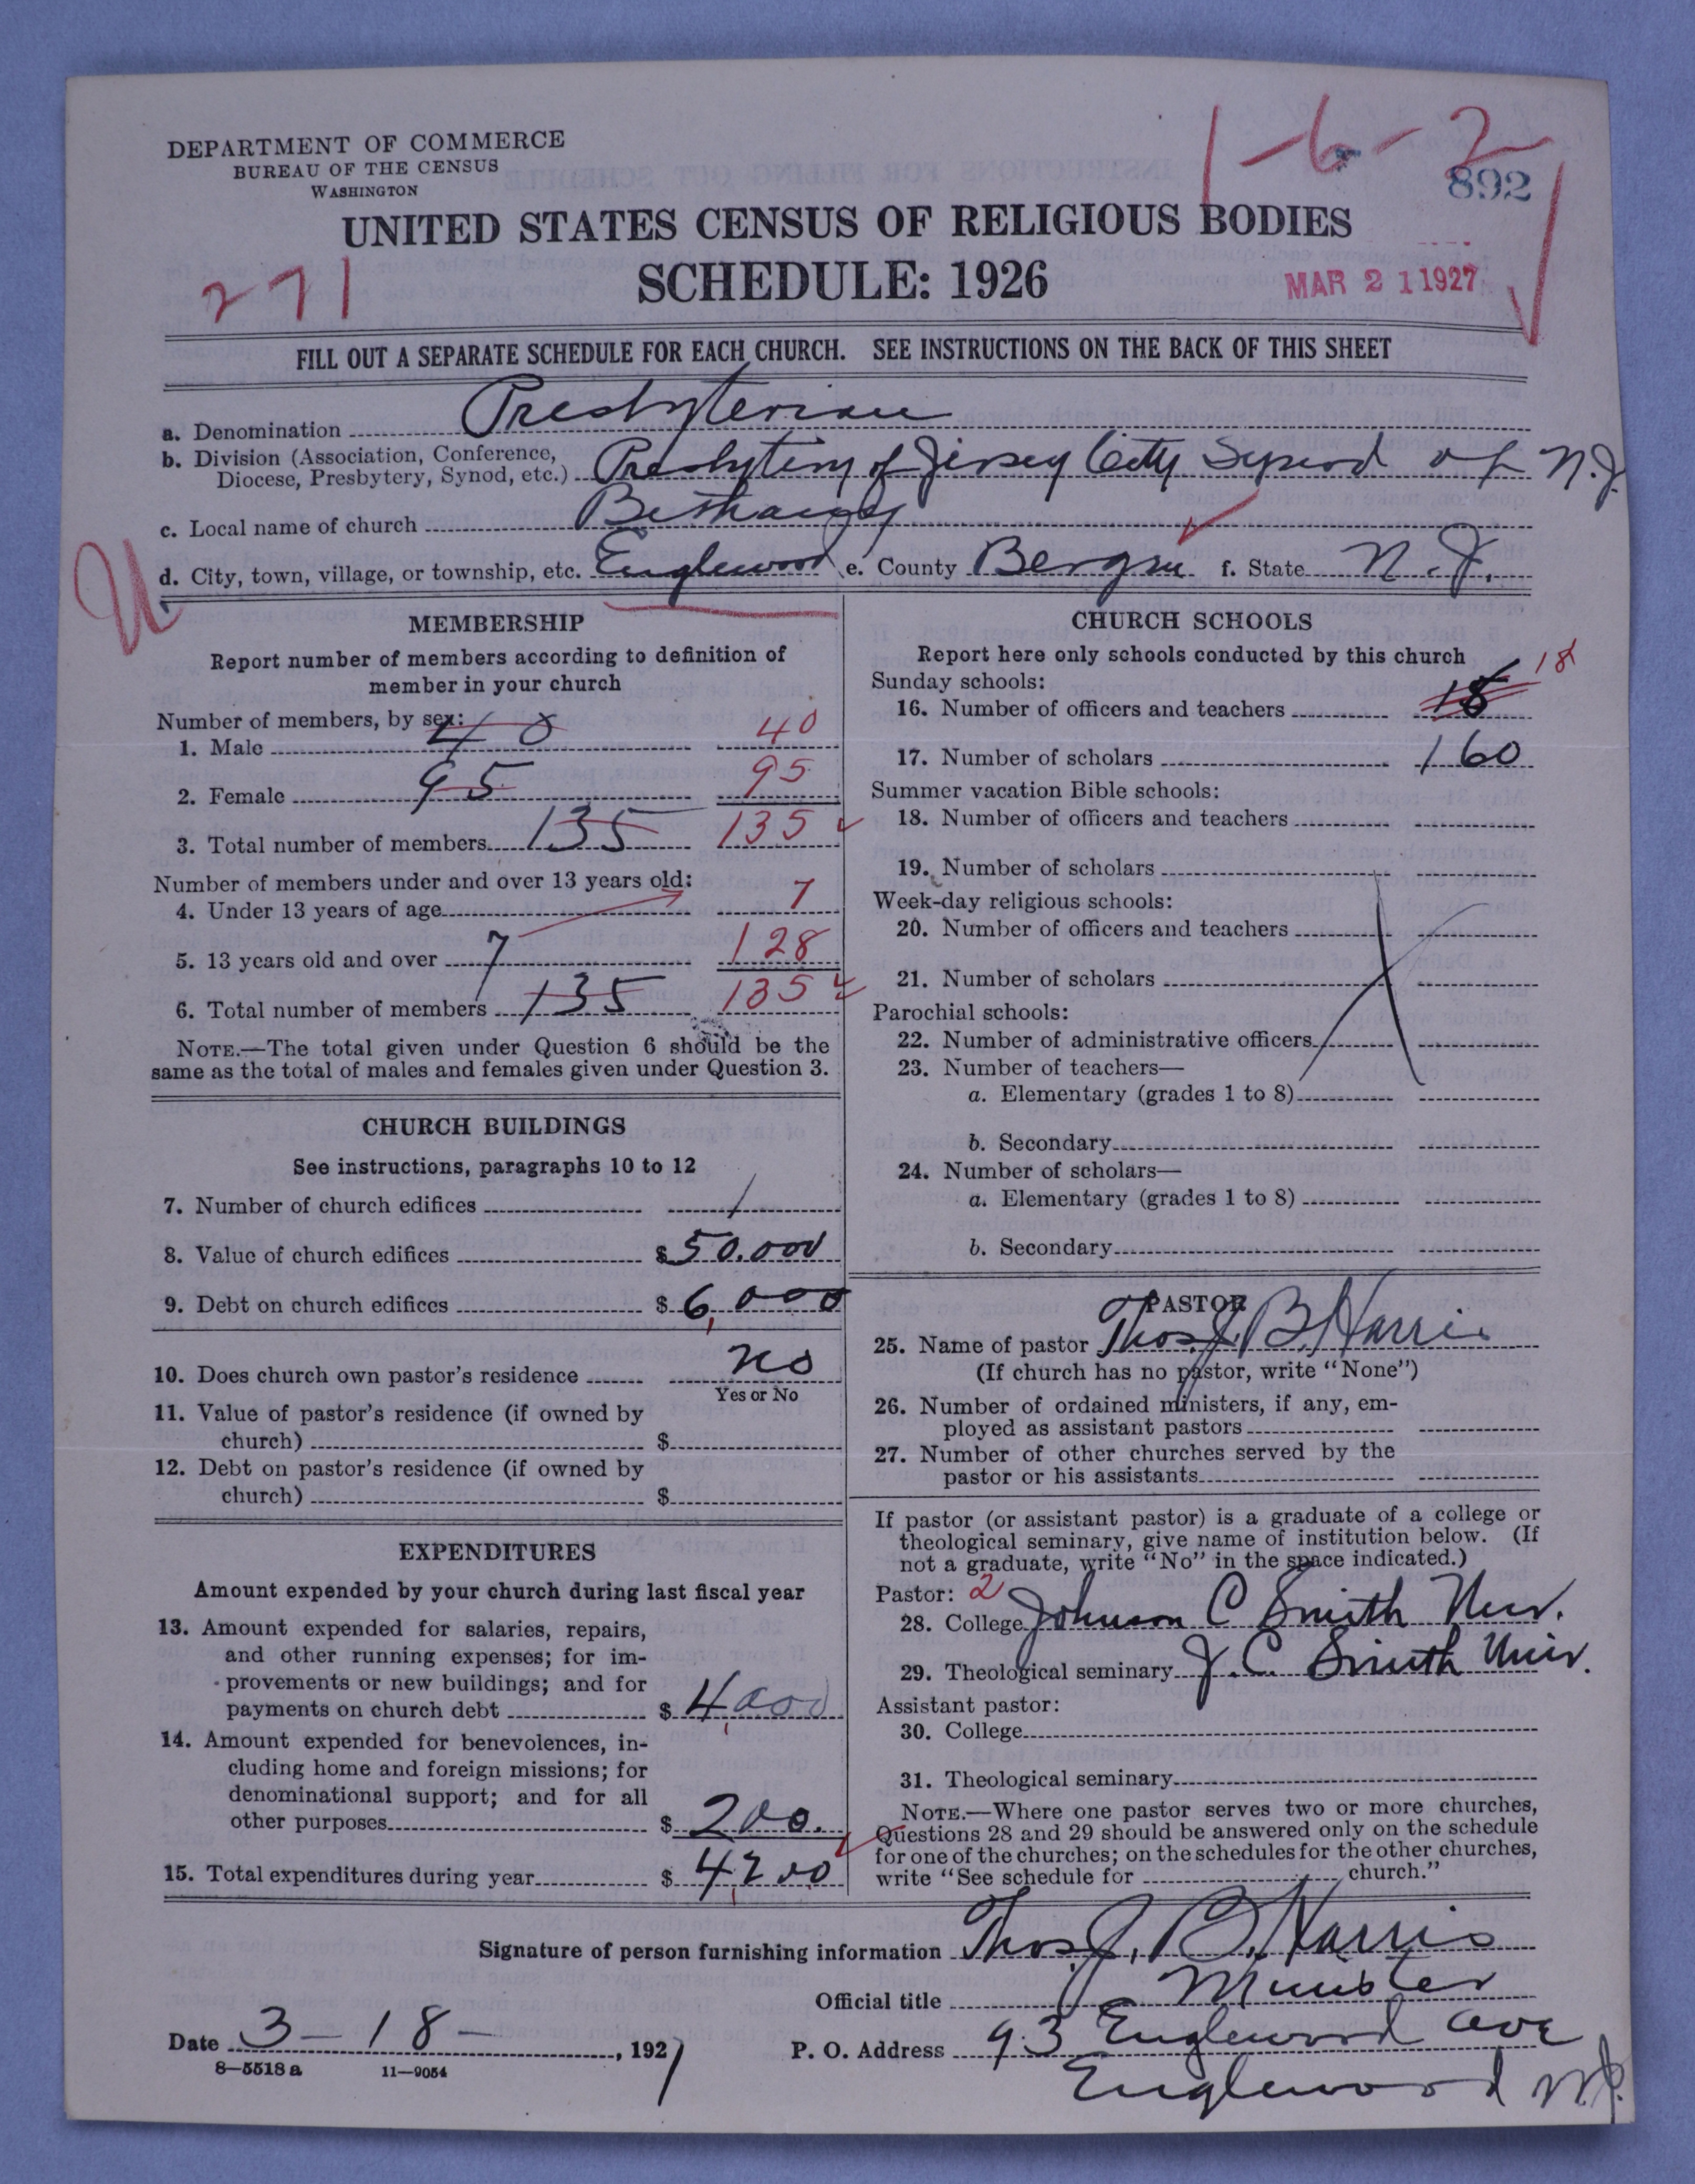 DEPARTMENT OF COMMERCE
BUREAU OF THE CENSUS
WASHINGTON
1-6-2
892
UNITED STATES CENSUS OF RELIGIOUS BODIES
271
SCHEDULE: 1926
MAR 21 1927
FILL OUT A SEPARATE SCHEDULE FOR EACH CHURCH. SEE INSTRUCTIONS ON THE BACK OF THIS SHEET
a. Denomination Presbyterian
b. Division (Association, Conference,
Diocese, Presbytery, Synod, etc.) Presbytery of Jersey City Synod of N.J.
c. Local name of church Bethany
U
d. City, town, village, or township, etc. Englewood e. County Bergen f. State N.J.
MEMBERSHIP
Report number of members according to definition of
member in your church
Number of members, by sex:
1. Male 40 40
2. Female 95 95
3. Total number of members 135 135
Number of members under and over 13 years old:
4. Under 13 years of age 7
5. 13 years old and over 7 128
6. Total number of members 135 135
NOTE.—The total given under Question 6 should be the
same as the total of males and females given under Question 3.
CHURCH BUILDINGS
See instructions, paragraphs 10 to 12
7. Number of church edifices 1
8. Value of church edifices $50.000
9. Debt on church edifices $6,000
10. Does church own pastor's residence no
Yes or No
11. Value of pastor's residence (if owned by
church) $
12. Debt on pastor's residence (if owned by
church) $
EXPENDITURES
Amount expended by your church during last fiscal year
13. Amount expended for salaries, repairs,
and other running expenses; for im-
provements or new buildings; and for
payments on church debt $4,000
14. Amount expended for benevolences, in-
cluding home and foreign missions; for
denominational support; and for all
other purposes $200.
15. Total expenditures during year $4,200
CHURCH SCHOOLS
Report here only schools conducted by this church
Sunday schools:
16. Number of officers and teachers 18 18
17. Number of scholars 160
Summer vacation Bible schools:
18. Number of officers and teachers
19. Number of scholars
Week-day religious schools:
20. Number of officers and teachers
21. Number of scholars
Parochial schools:
22. Number of administrative officers
23. Number of teachers—
a. Elementary (grades 1 to 8)
b. Secondary
24. Number of scholars—
a. Elementary (grades 1 to 8)
b. Secondary
PASTOR
25. Name of pastor Thos. J. B. Harris
(If church has no pastor, write "None")
26. Number of ordained ministers, if any, em-
ployed as assistant pastors
27. Number of other churches served by the
pastor or his assistants
If pastor (or assistant pastor) is a graduate of a college or
theological seminary, give name of institution below. (If
not a graduate, write "No" in the space indicated.)
Pastor: 2
28. College Johnson C Smith Univ.
29. Theological seminary J. C. Smith Univ.
Assistant pastor:
30. College
31. Theological seminary
NOTE.—Where one pastor serves two or more churches,
Questions 28 and 29 should be answered only on the schedule
for one of the churches; on the schedules for the other churches,
write "See schedule for church."
Signature of person furnishing information Thos. J. B. Harris
Official title Minister
Date 3-18-, 1927
P. O. Address 93 Englewood Ave
Englewood N.J.
8-5518 a 11-9054